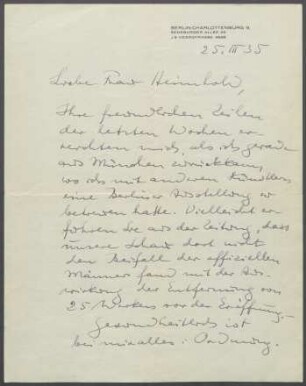 BERLIN-CHARLOTTENBURG 9
25. III 35
Liebe Frau Heimholdt,
Ihre freundlichen Zeilen
der letzten Wochen er
reichten mich, als ich gerade
aus München zurückkam,
wo ich mit anderen Künstlern
eine Berliner Ausstellung zu
betreuen hatte. Vielleicht er
fuhren Sie aus der Zeitung, dass
unsere Schau dort nicht
den Beifall der offiziellen
Männer fand mit der Aus
wirkung der Entfernung von
25 Werken vor der Eröffnung.
Gesundheitlich ist
bei mir alles in Ordnung.